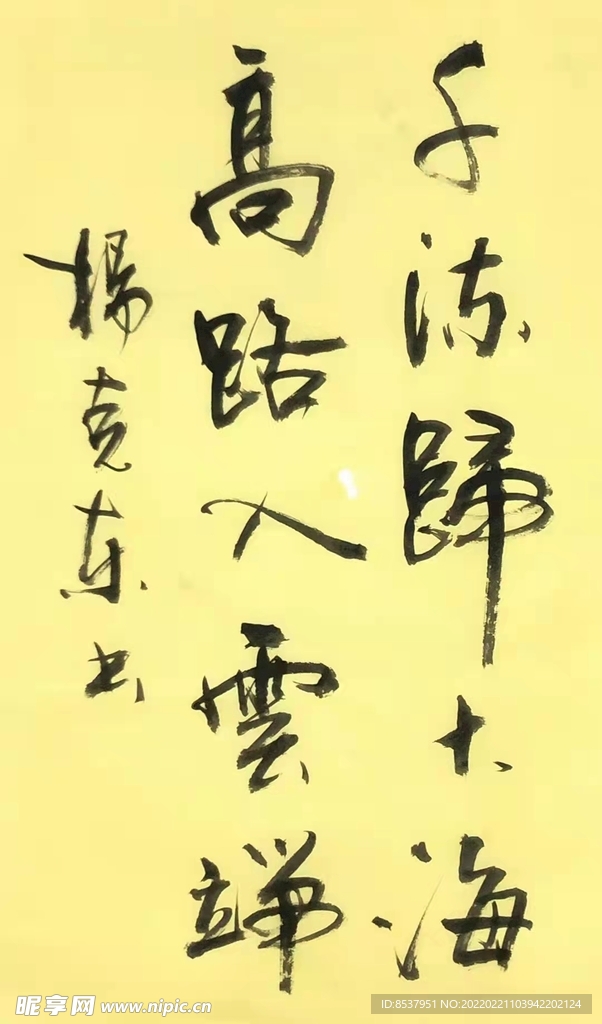 千流歸大海
高路入雲端
楊克东书
昵享网 www.nipic.cn
ID:8537951 NO:20220221103942202124